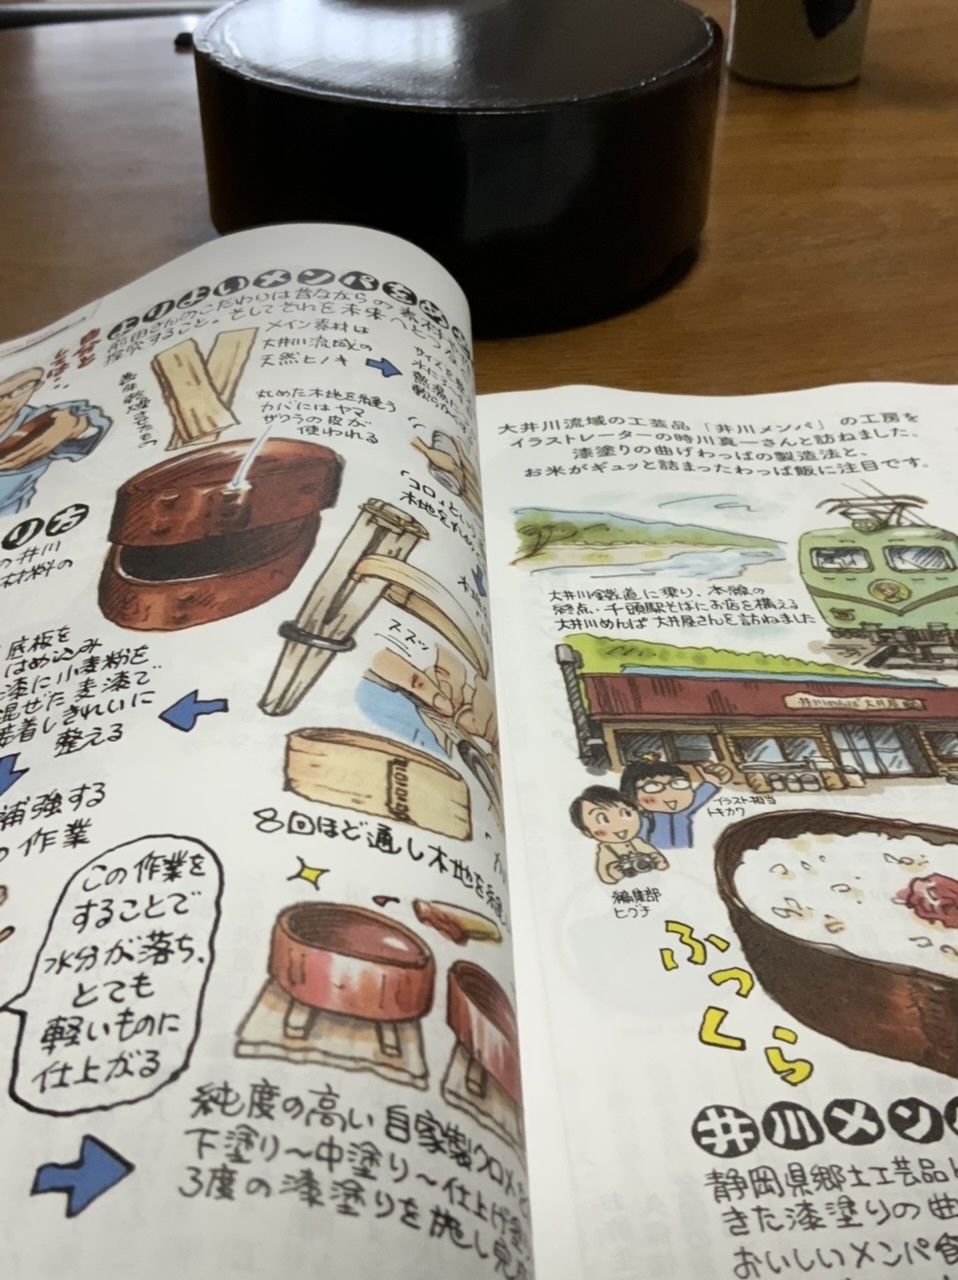 よりよいメンパをめ
前田さんのこだわりは昔ながらの素材
探究すること。そしてそれを未来へと
メイン素材は
大井川流域の
天然ヒノキ
丸めた木地を縫う
カバにはヤマ
ザクラの皮が
使われる
り方
の井川
材料の
底板を
はめ込み
漆に小麦粉を
混ぜた麦漆で
接着しきれいに
整える
補強する
作業
この作業を
することで
水分が落ち、
とても
軽いものに
仕上がる
ズズッ
8回ほど通し木地を
純度の高い自家製クロメ
下塗り〜中塗り〜仕上げ
3度の漆塗りを施し
大井川流域の工芸品「井川メンパ」の工房を
イラストレーターの時川真一さんと訪ねました。
漆塗りの曲げわっぱの製造法と、
お米がギュッと詰まったわっぱ飯に注目です。
大井川鐵道に乗り、本線の
終点・千頭駅そばにお店を構える
大井川めんぱ 大井屋さんを訪ねました
井川めんぱ 大井屋
イラスト担当
トキカワ
編集部
ヒグチ
ふっくら
井川メンパ
静岡県郷土工芸品
きた漆塗りの曲
おいしいメンパ